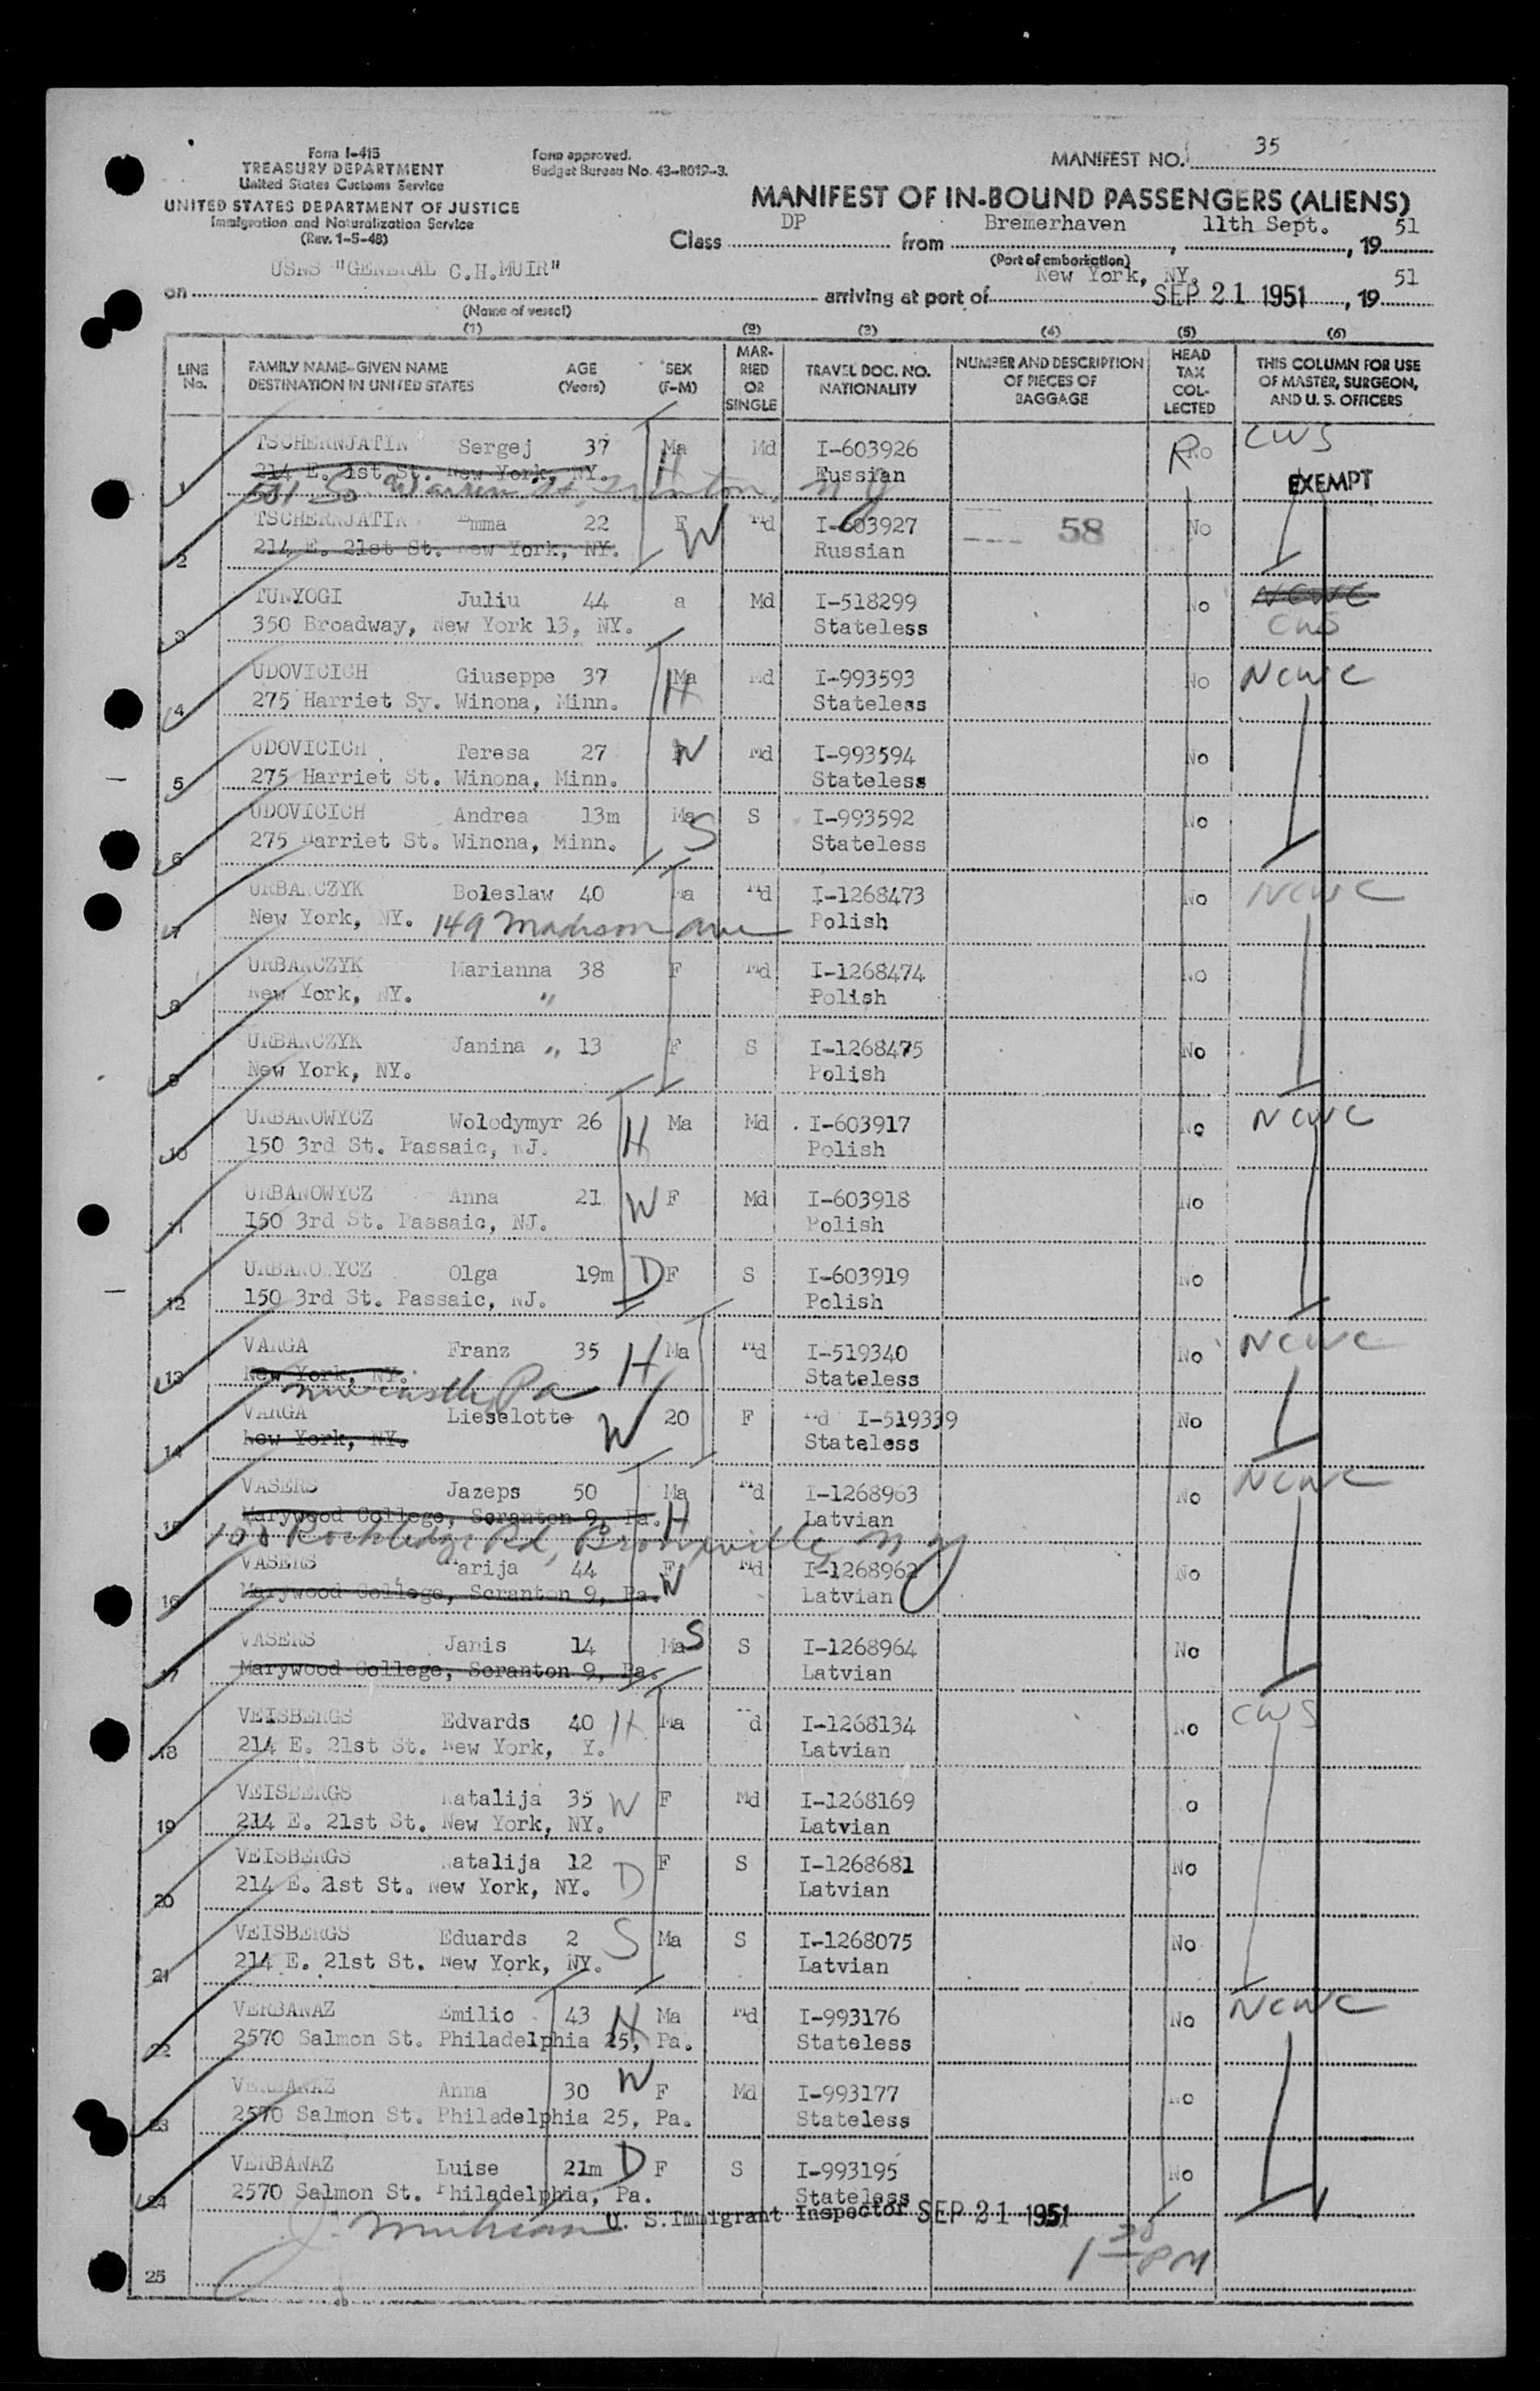 Form I-415
TREASURY DEPARTMENT
United States Customs Service
UNITED STATES DEPARTMENT OF JUSTICE
Immigration and Naturalization Service
(Rev. 1-5-48)
Form approved.
Budget Bureau No. 43-R019-3.
MANIFEST NO. 35
MANIFEST OF IN-BOUND PASSENGERS (ALIENS)
Class DP from Bremerhaven, 11th Sept., 19 51
(Port of embarkation)
on USNS "GENERAL C.H.MUIR" arriving at port of New York, NY. SEP 21 1951, 19 51
(Name of vessel)
(1) (2) (3) (4) (5) (6)
LINE No. FAMILY NAME-GIVEN NAME DESTINATION IN UNITED STATES AGE (Years) SEX (F-M) MARRIED OR SINGLE TRAVEL DOC. NO. NATIONALITY NUMBER AND DESCRIPTION OF PIECES OF BAGGAGE HEAD TAX COLLECTED THIS COLUMN FOR USE OF MASTER, SURGEON, AND U. S. OFFICERS
TSCHERNJATIN Sergej 37 Ma Md I-603926 No CWS
214 E. 21st St. New York, NY. H Russian R EXEMPT
1 501 So. Warren St, Trenton, NJ
TSCHERNJATIN Emma 22 F W Md I-603927 58 No
2 214 E. 21st St. New York, NY. Russian
TUNYOGI Juliu 44 a Md I-518299 No NCWC
3 350 Broadway, New York 13, NY. Stateless CWS
UDOVICICH Giuseppe 37 Ma H Md I-993593 No NCWC
4 275 Harriet Sy. Winona, Minn. Stateless
UDOVICICH Teresa 27 W Md I-993594 No
5 275 Harriet St. Winona, Minn. Stateless
UDOVICICH Andrea 13m Ma S S I-993592 No
6 275 Harriet St. Winona, Minn. Stateless
URBANCZYK Boleslaw 40 Ma Md I-1268473 No NCWC
7 New York, NY. 149 Madison Ave Polish
URBANCZYK Marianna 38 F Md I-1268474 No
8 New York, NY. " Polish
URBANCZYK Janina " 13 F S I-1268475 No
9 New York, NY. Polish
URBANOWYCZ Wolodymyr 26 H Ma Md I-603917 No NCWC
10 150 3rd St. Passaic, NJ. Polish
URBANOWYCZ Anna 21 W F Md I-603918 No
11 150 3rd St. Passaic, NJ. Polish
URBANOWYCZ Olga 19m D F S I-603919 No
12 150 3rd St. Passaic, NJ. Polish
VARGA Franz 35 H Ma Md I-519340 No NCWC
13 New York, NY. Stateless
Newcastle, Pa
VARGA Lieselotte W 20 F Md I-519339 No
14 New York, NY. Stateless
VASERS Jazeps 50 Ma Md I-1268963 No NCWC
15 Marywood College, Scranton 9, Pa. H Latvian
108 Rockledge Rd, Bronxville NY
VASERS Marija 44 F Md I-1268962 No
16 Marywood College, Scranton 9, Pa. W Latvian
VASERS Janis 14 Ma S S I-1268964 No
17 Marywood College, Scranton 9, Pa. Latvian
VEISBERGS Edvards 40 H Ma d I-1268134 No CWS
18 214 E. 21st St. New York, Y. Latvian
VEISBERGS Natalija 35 W F Md I-1268169 o
19 214 E. 21st St. New York, NY. Latvian
VEISBERGS Natalija 12 D F S I-1268681 No
20 214 E. 21st St. New York, NY. Latvian
VEISBERGS Eduards 2 S Ma S I-1268075 No
21 214 E. 21st St. New York, NY. Latvian
VERBANAZ Emilio 43 H Ma Md I-993176 No NCWC
22 2570 Salmon St. Philadelphia 25, Pa. Stateless
VERBANAZ Anna 30 W F Md I-993177 No
23 2570 Salmon St. Philadelphia 25, Pa. Stateless
VERBANAZ Luise 21m D F S I-993195 No
24 2570 Salmon St. Philadelphia, Pa. Stateless
U. S. Immigrant Inspector SEP 21 1951
1 30 PM
25